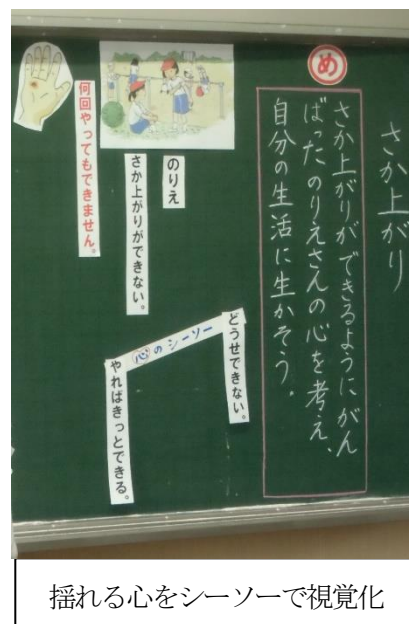 さか上がり
め
さか上がりができるようにがん
ばったのりえさんの心を考え、
自分の生活に生かそう。
のりえ
さか上がりができない。
何回やってもできません。
どうせできない。
心のシーソー
やればきっとできる。
揺れる心をシーソーで視覚化